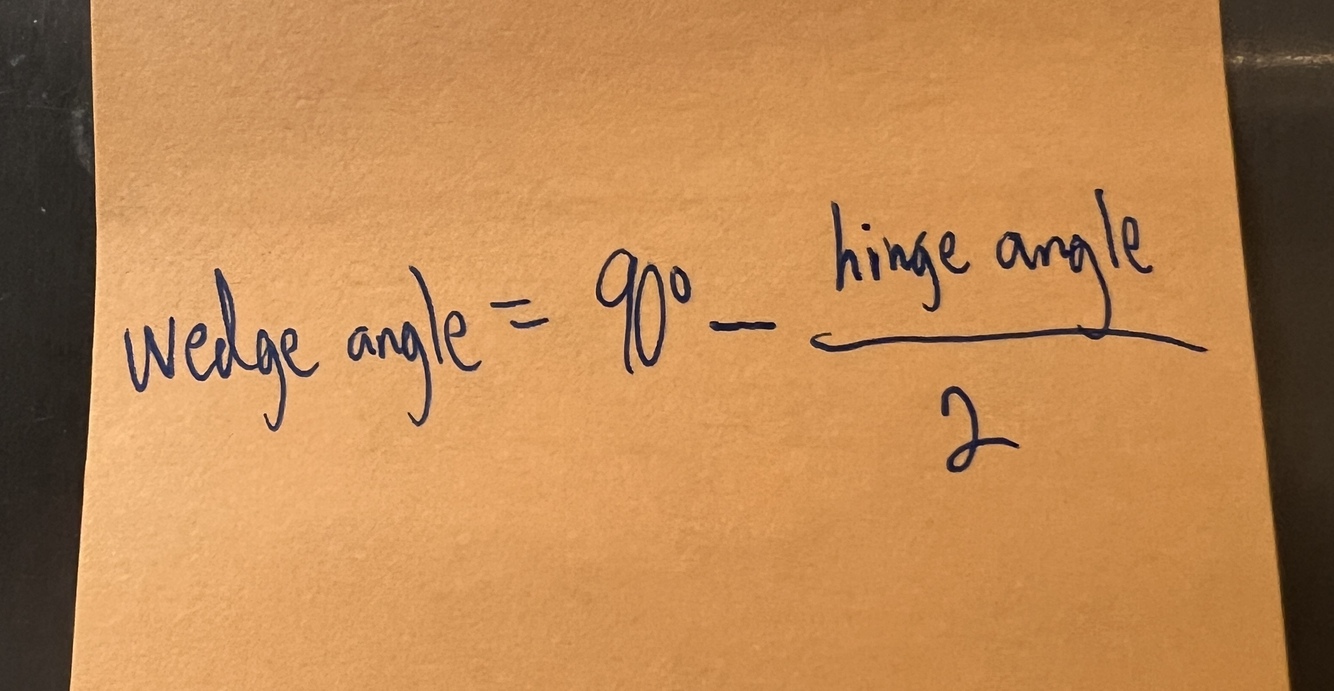 wedge angle = 90° - hinge angle / 2